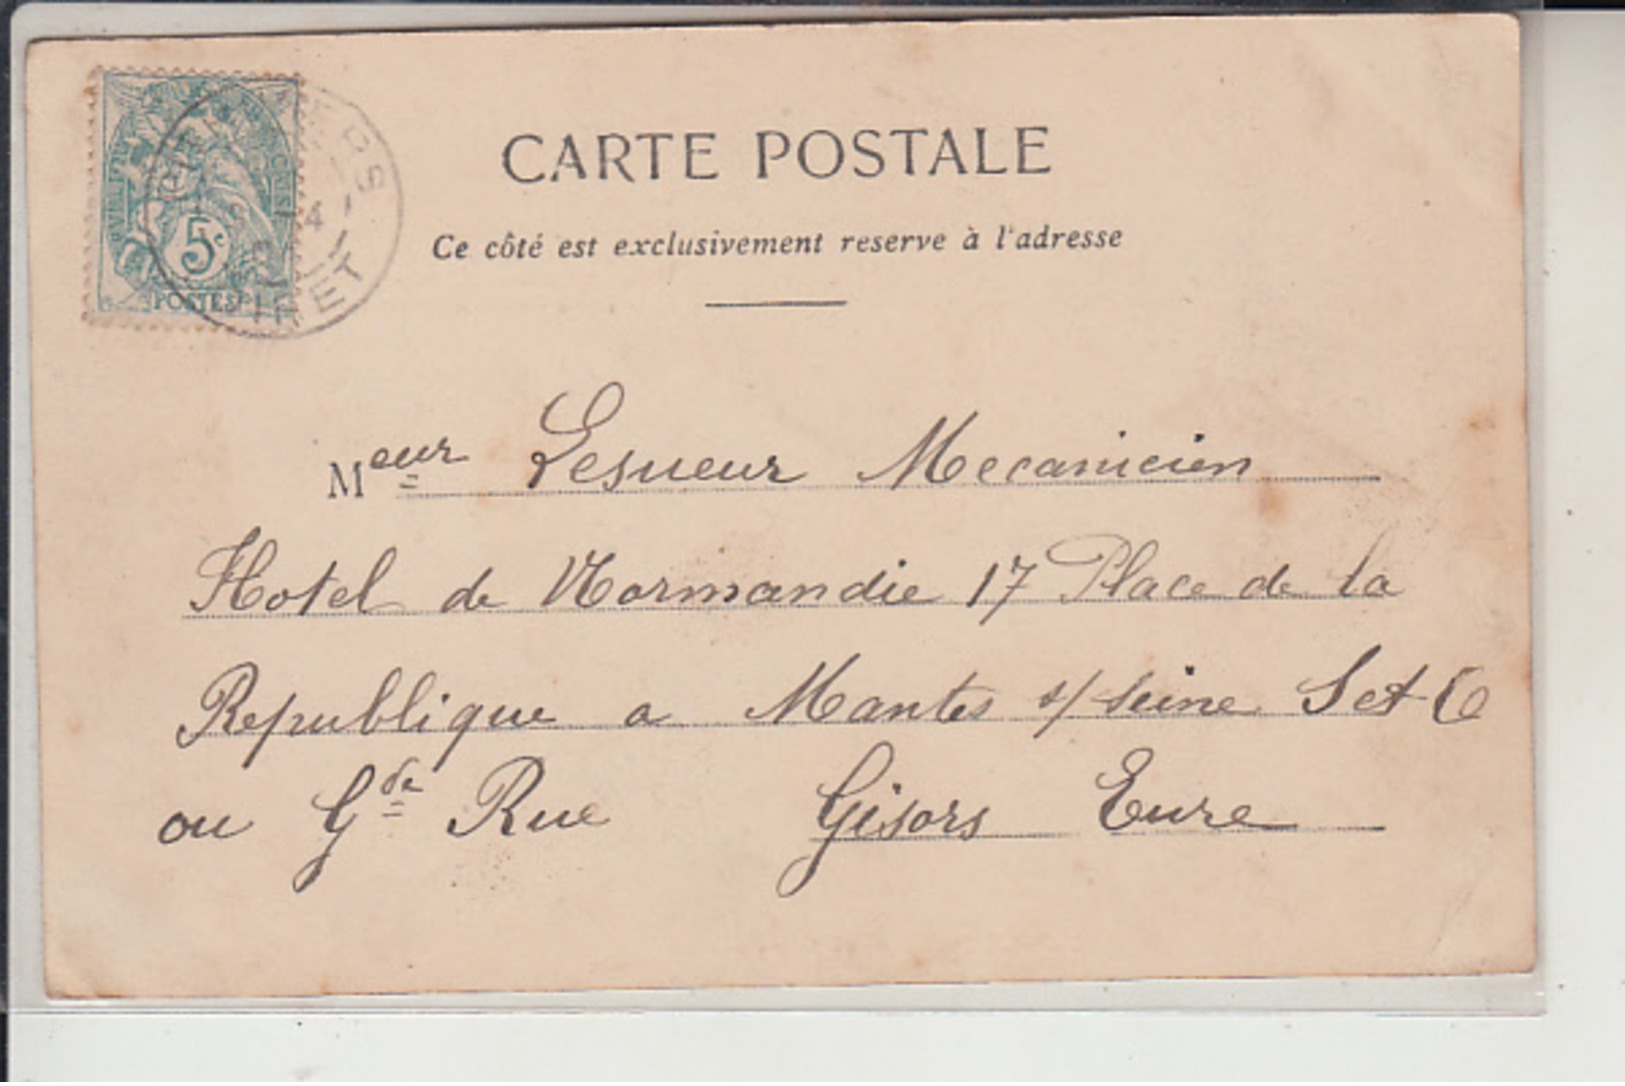 CARTE POSTALE
Ce côté est exclusivement reserve à l'adresse
5c
POSTES
4
Meur Lesueur Mecanicien
Hotel de Normandie 17 Place de la
Republique a Mantes s/ Seine S et O
ou Gde Rue Gisors Eure